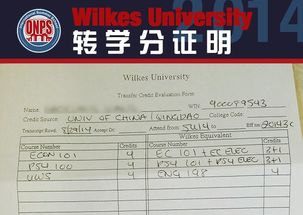 2014
ONPS
Wilkes University
转学分证明
Wilkes University
Transfer Credit Evaluation Form
Name:
WIN: 900089543
Credit Source: UNIV OF CHINA/QINGDAO College Code:
Transcript Rcvd: 8/29/14 Accept Dt: Attend from 5/4/14 to Eff Term 201430
Wilkes Equivalent
Course Number Credits Course Number Credits
ECON 101 4 EC 101 + EC ELEC 3+1
PSY 100 4 PSY 101 + PSY ELEC 3+1
UWS 4 ENG 198 4